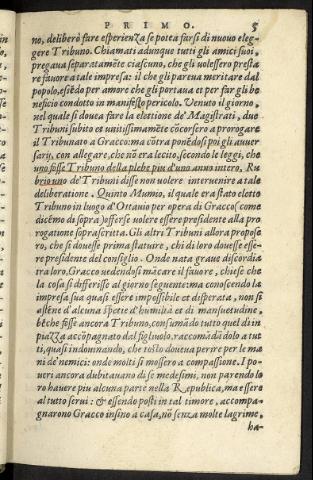 PRIMO. 5
no, deliberò fare esperienza se potea farsi di nuouo eleg-
gere Tribuno. Chiamati adunque tutti gli amici suoi,
pregaua separatamēte ciascuno, che gli volessero presta
re fauore a tale impresa: il che gli pareua meritare dal
popolo, essēdo per amore che gli portaua et per far gli be
neficio condotto in manifesto pericolo. Venuto il giorno,
nel quale si doueua fare la elettione de' Magistrati, due
Tribuni subito et vnitissimamēte cōcorsero a prorogare
il Tribunato a Gracco: ma cōtra ponēdosi poi gli auuer
sarij, con allegare, che nō era lecito, secondo le leggi, che
uno fosse Tribuno della plebe piu d'uno anno intero, Ru
brio uno de' Tribuni disse non volere interuenire a tale
deliberatione. Quinto Mumio, il quale era stato eletto
Tribuno in luogo d'Ottauio per opera di Gracco (come
dicēmo di sopra) offerse volere essere presidente alla pro
rogatione soprascritta. Gli altri Tribuni allora propose
ro, che si douesse prima statuire, chi di loro douesse esse-
re presidente del consiglio. Onde nata graue discordia
tra loro, Gracco vedendosi mācare il fauore, chiese che
la cosa si differisse al giorno seguente: ma conoscendo la
impresa sua quasi essere impossibile et disperata, non si
astēne d'alcuna spetie d'humiltà et di mansuetudine,
bēche fosse ancora Tribuno, consumādo tutto quel dì in
piazza accōpagnato dal figliuolo, raccomādādolo a tut
ti, quasi indouinando, che tosto doueua perire per le ma
ni de' nemici: onde molti si mossero a compassione. I po-
ueri ancora dubitauano di se medesimi, non parendo lo
ro hauere piu alcuna parte nella Republica, ma essere
al tutto serui: & essendo posti in tal timore, accompa-
gnarono Gracco insino a casa, nō senza molte lagrime,
ha-